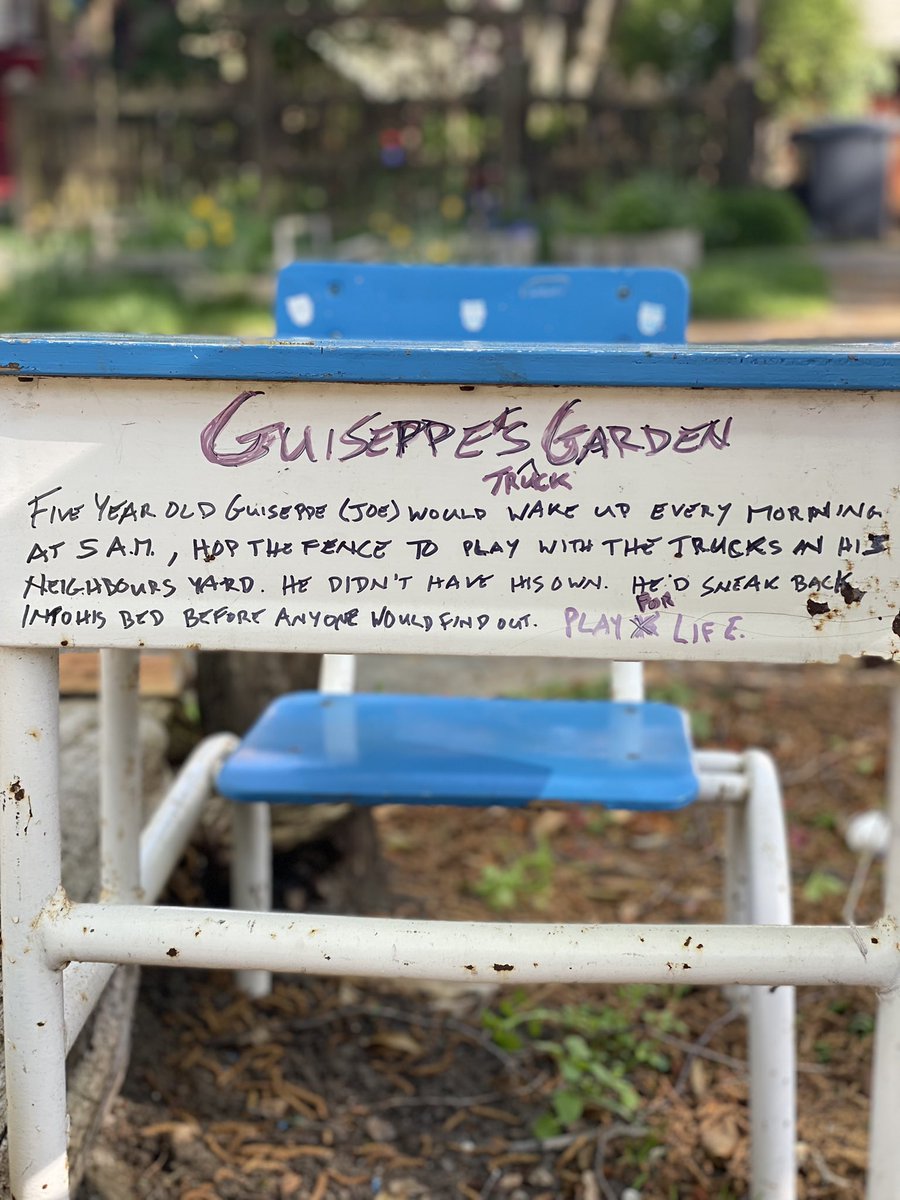 GUISEPPE'S GARDEN
TRUCK
FIVE YEAR OLD GUISEPPE (JOE) WOULD WAKE UP EVERY MORNING
AT 5 A.M., HOP THE FENCE TO PLAY WITH THE TRUCKS IN HIS
NEIGHBOURS YARD. HE DIDN'T HAVE HIS OWN. HE'D SNEAK BACK
INTO HIS BED BEFORE ANYONE WOULD FIND OUT. PLAY FOR LIFE.